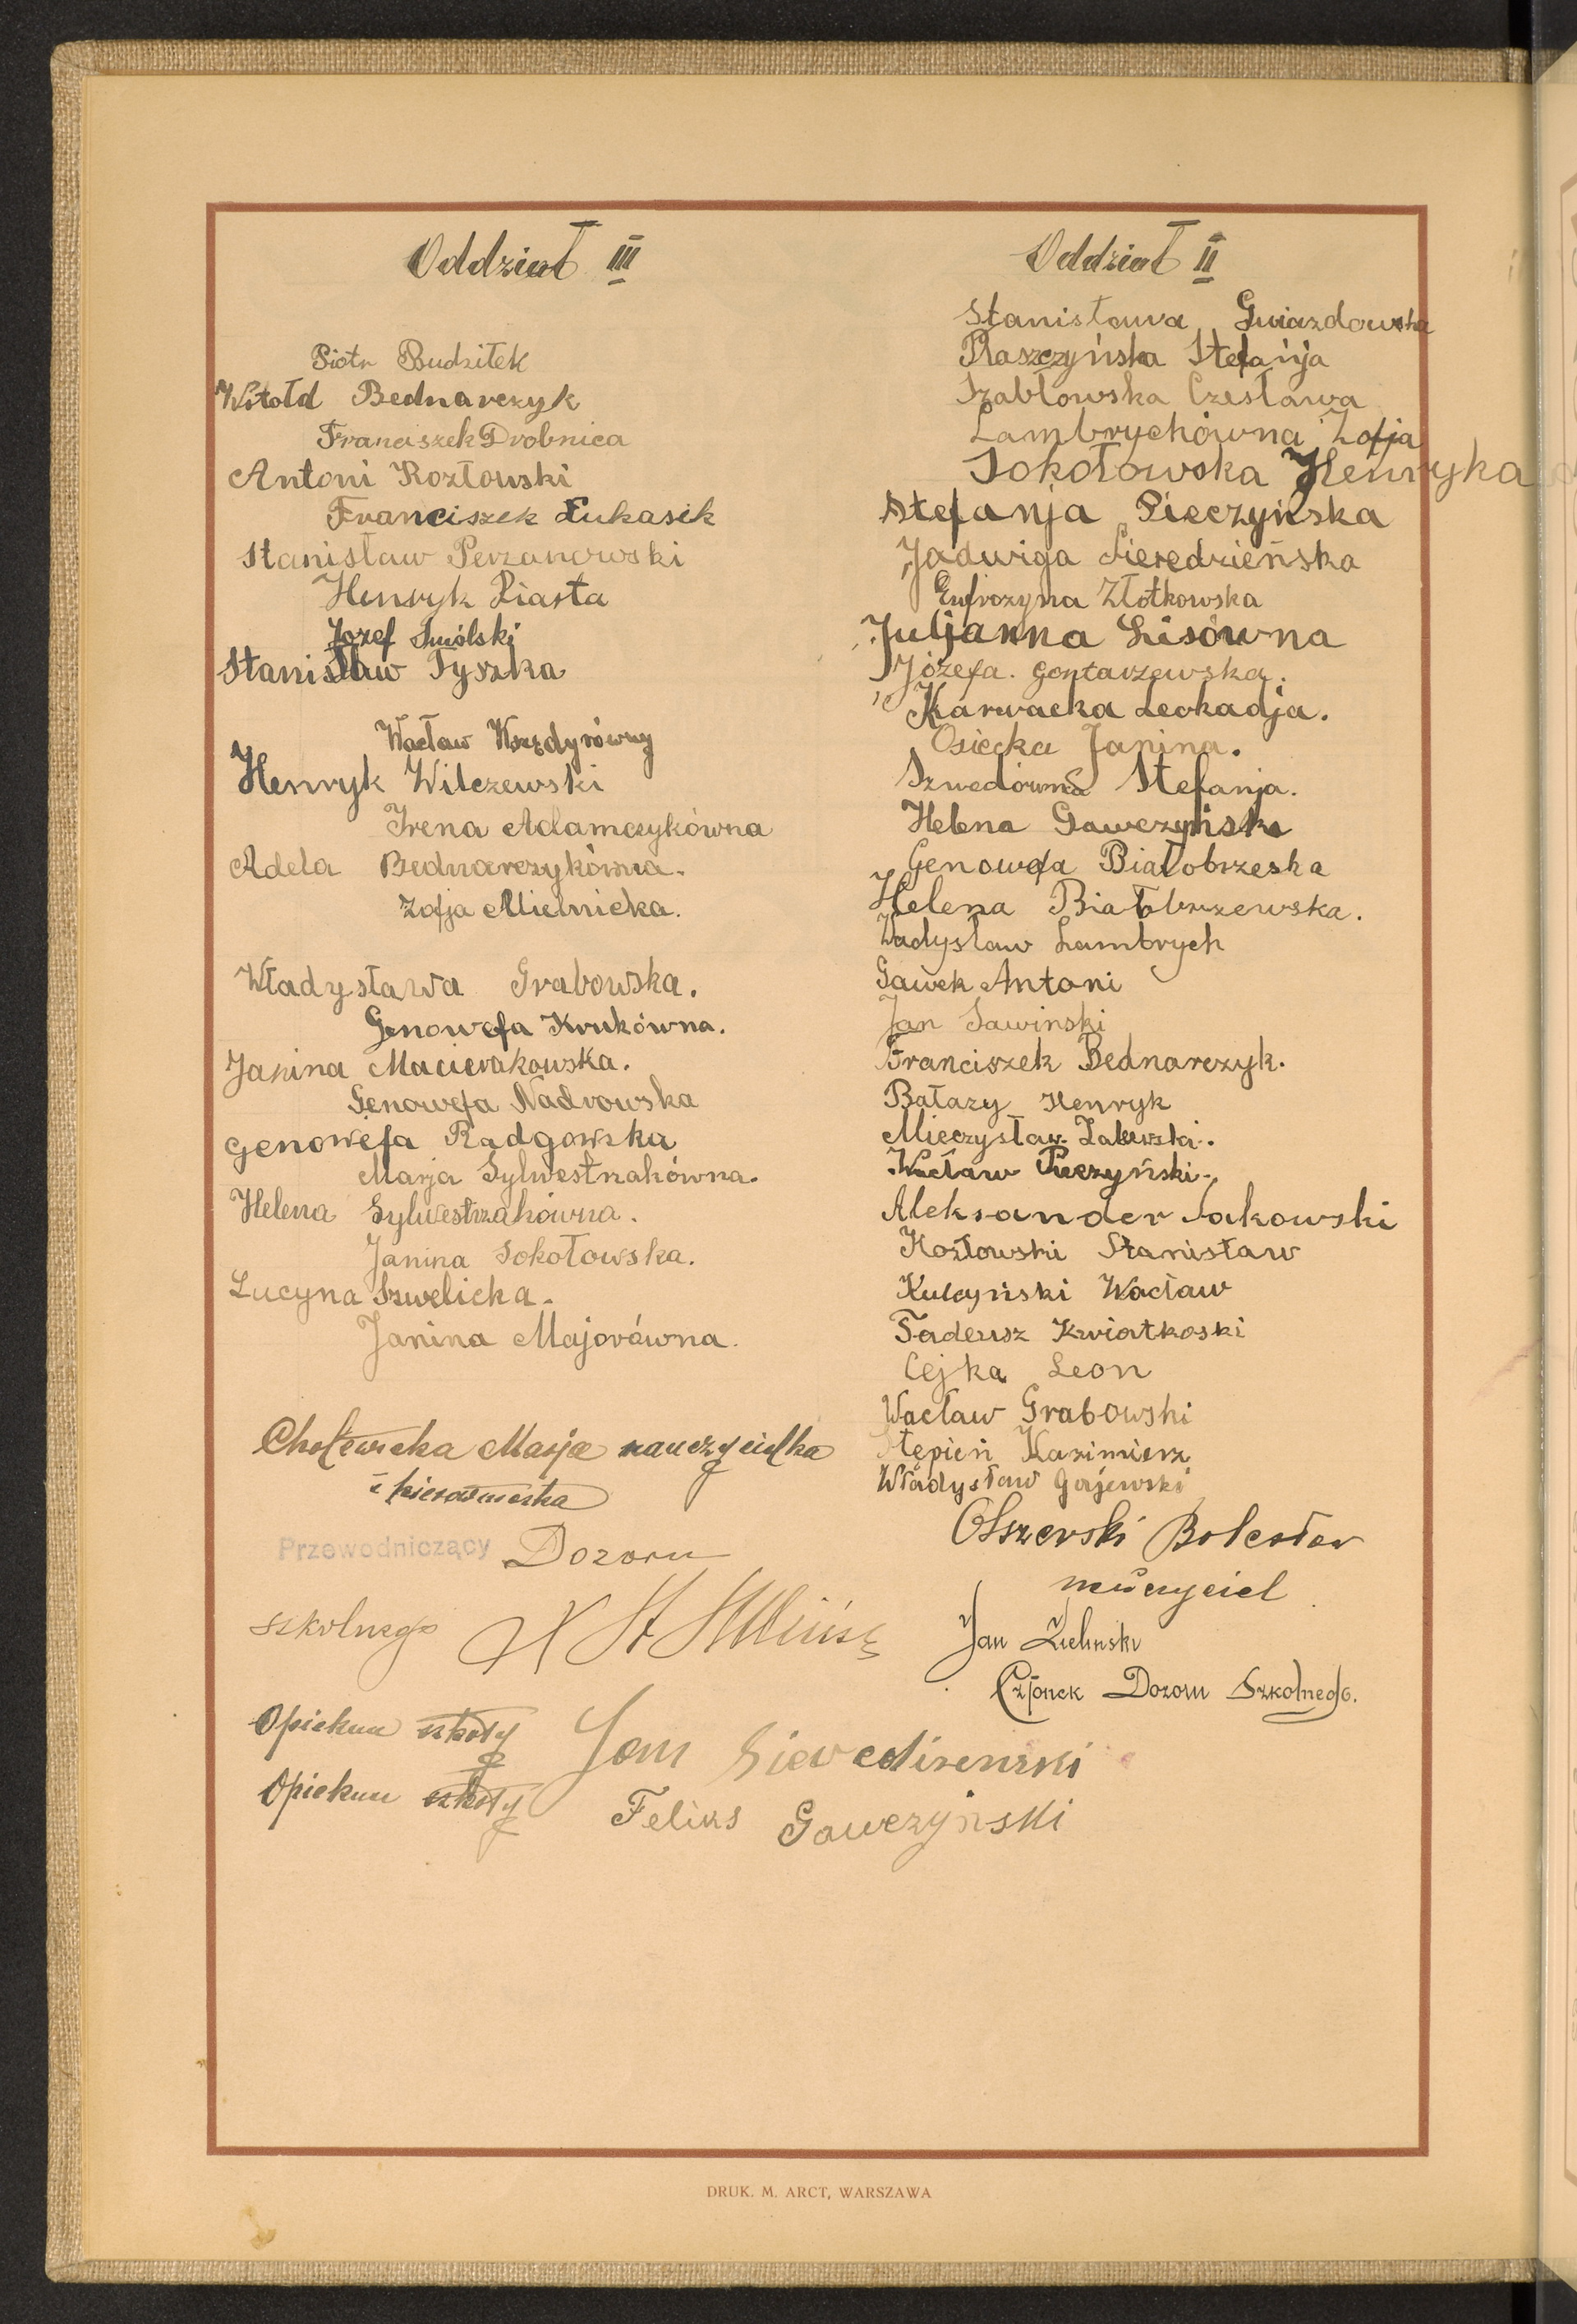 Oddział III
Piotr Budziłek
Witołd Bednarczyk
Franciszek Drobnica
Antoni Kozłowski
Franciszek Łukasik
Stanisław Perzanowski
Henryk Piasta
Józef Smólski
Stanisław Tyszka
Wacław
Henryk Wilczewski
Irena Adamczykówna
Adela Bednarczykówna.
Zofja Mielnicka.
Władysława Grabowska.
Genowefa Krukówna.
Janina Macierakowska.
Genowefa Nadrowska
Genowefa Radgowska
Marja Sylwestrzakówna.
Helena Sylwestrzakówna.
Janina Sokołowska.
Lucyna Szwelicka.
Janina Majorówna.
Cholewicka Marja nauczycielka
i kierowniczka
Przewodniczący Dozoru
szkolnego
Opiekun szkoły Jan Sieredzieński
Opiekun szkoły Feliks Gawczyński
Oddział II
Stanisława Gwiazdowska
Płaszczyńska Stefańja
Szabłowska Czesława
Lambrychówna Zofja
Sokołowska Henryka
Stefanja Pieczyńska
Jadwiga Sieredzieńska
Eufrozyna Złotkowska
Juljanna Lisówna
Józefa. Gontarzewska.
Karwacka Leokadja.
Osiecka Janina.
Szwedówna Stefanja.
Helena Gawczyńska
Genowefa Białobrzeska
Helena Białobrzewska.
Władysław Lambrych
Gawek Antoni
Jan Sawinski
Franciszek Bednarczyk.
Bałazy Henryk
Mieczysław Zalewski.
Wacław Pieczyński.
Aleksander Sakowski
Kozłowski Stanisław
Kulczyński Wacław
Tadeusz Kwiatkoski
Cejka Leon
Wacław Grabowski
Stępień Kazimierz
Władysław Gajewski
Olszewski Bolesław
nauczyciel
Jan Zieliński
Członek Dozoru Szkolnego.
DRUK. M. ARCT, WARSZAWA